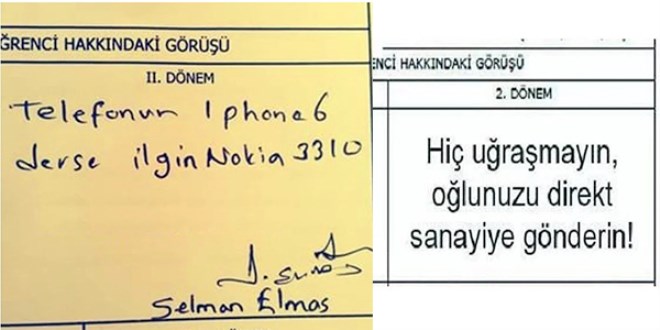 ĞRENCİ HAKKINDAKİ GÖRÜŞÜ
II. DÖNEM
Telefonun Iphone6
derse ilgin Nokia 3310
Selman Elmas
ENCİ HAKKINDAKİ GÖRÜŞÜ
2. DÖNEM
Hiç uğraşmayın,
oğlunuzu direkt
sanayiye gönderin!